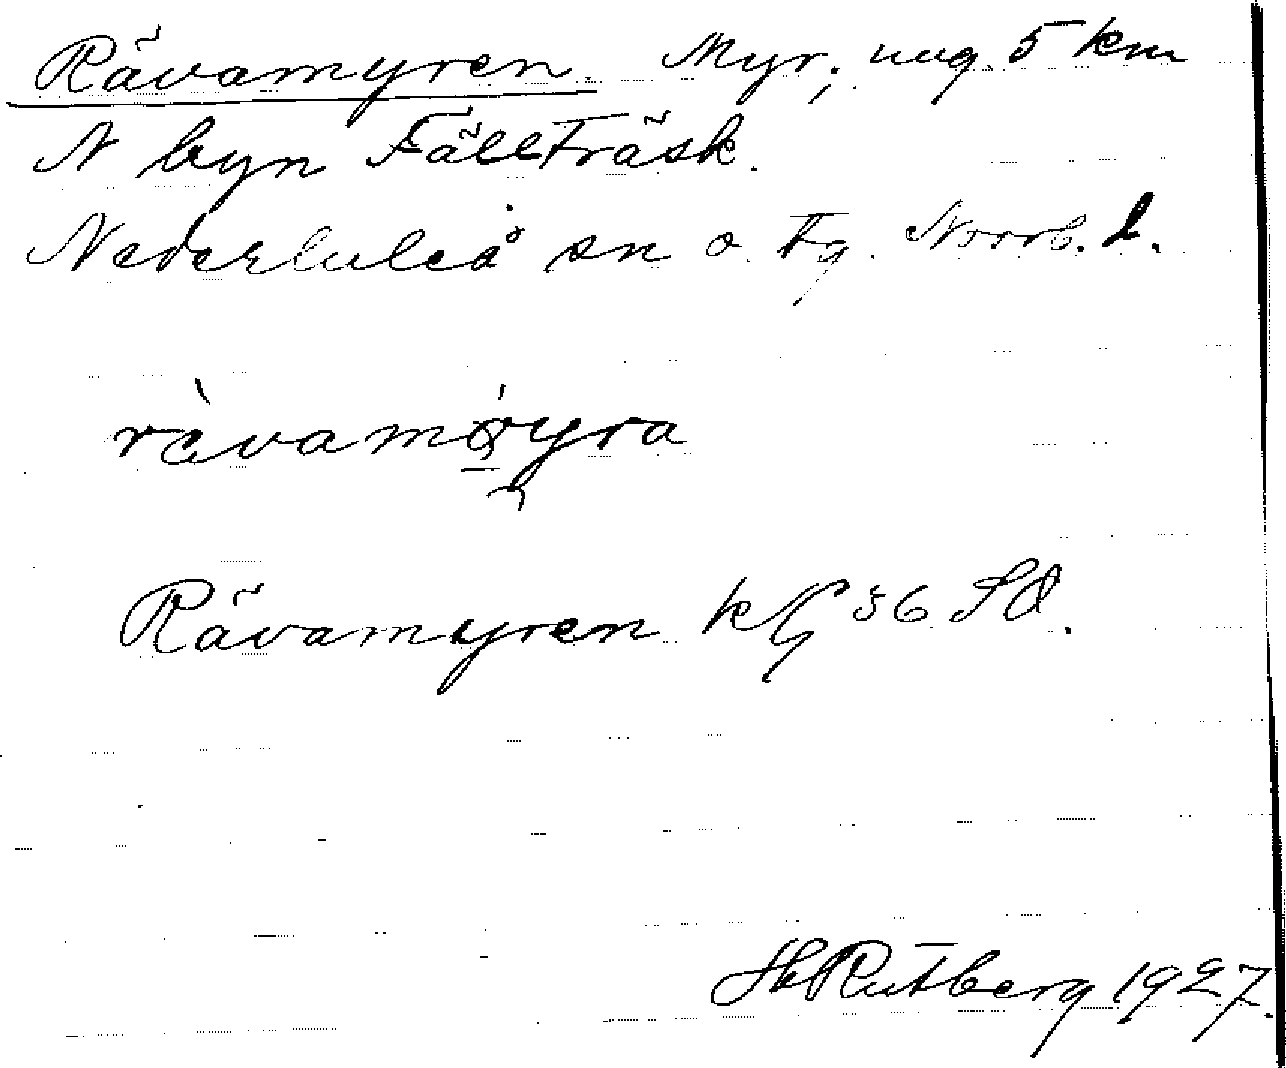 Rävamyren. Myr, ung. 5 km
N byn Fällträsk.
Nederluleå sn o. tg. Norrb. l.
rävamøyra
Rävamyren kbl 36 SO.
Hb Rutberg 1927.